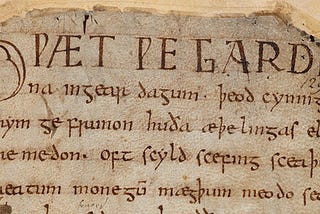 ǷÆT ǷE GARD
na ingear dagum. þeod cyning
ym ge frunon huða æþelingas el
medon. oft scyld scefing sceaþ
eatum monegū mægþum meodo se